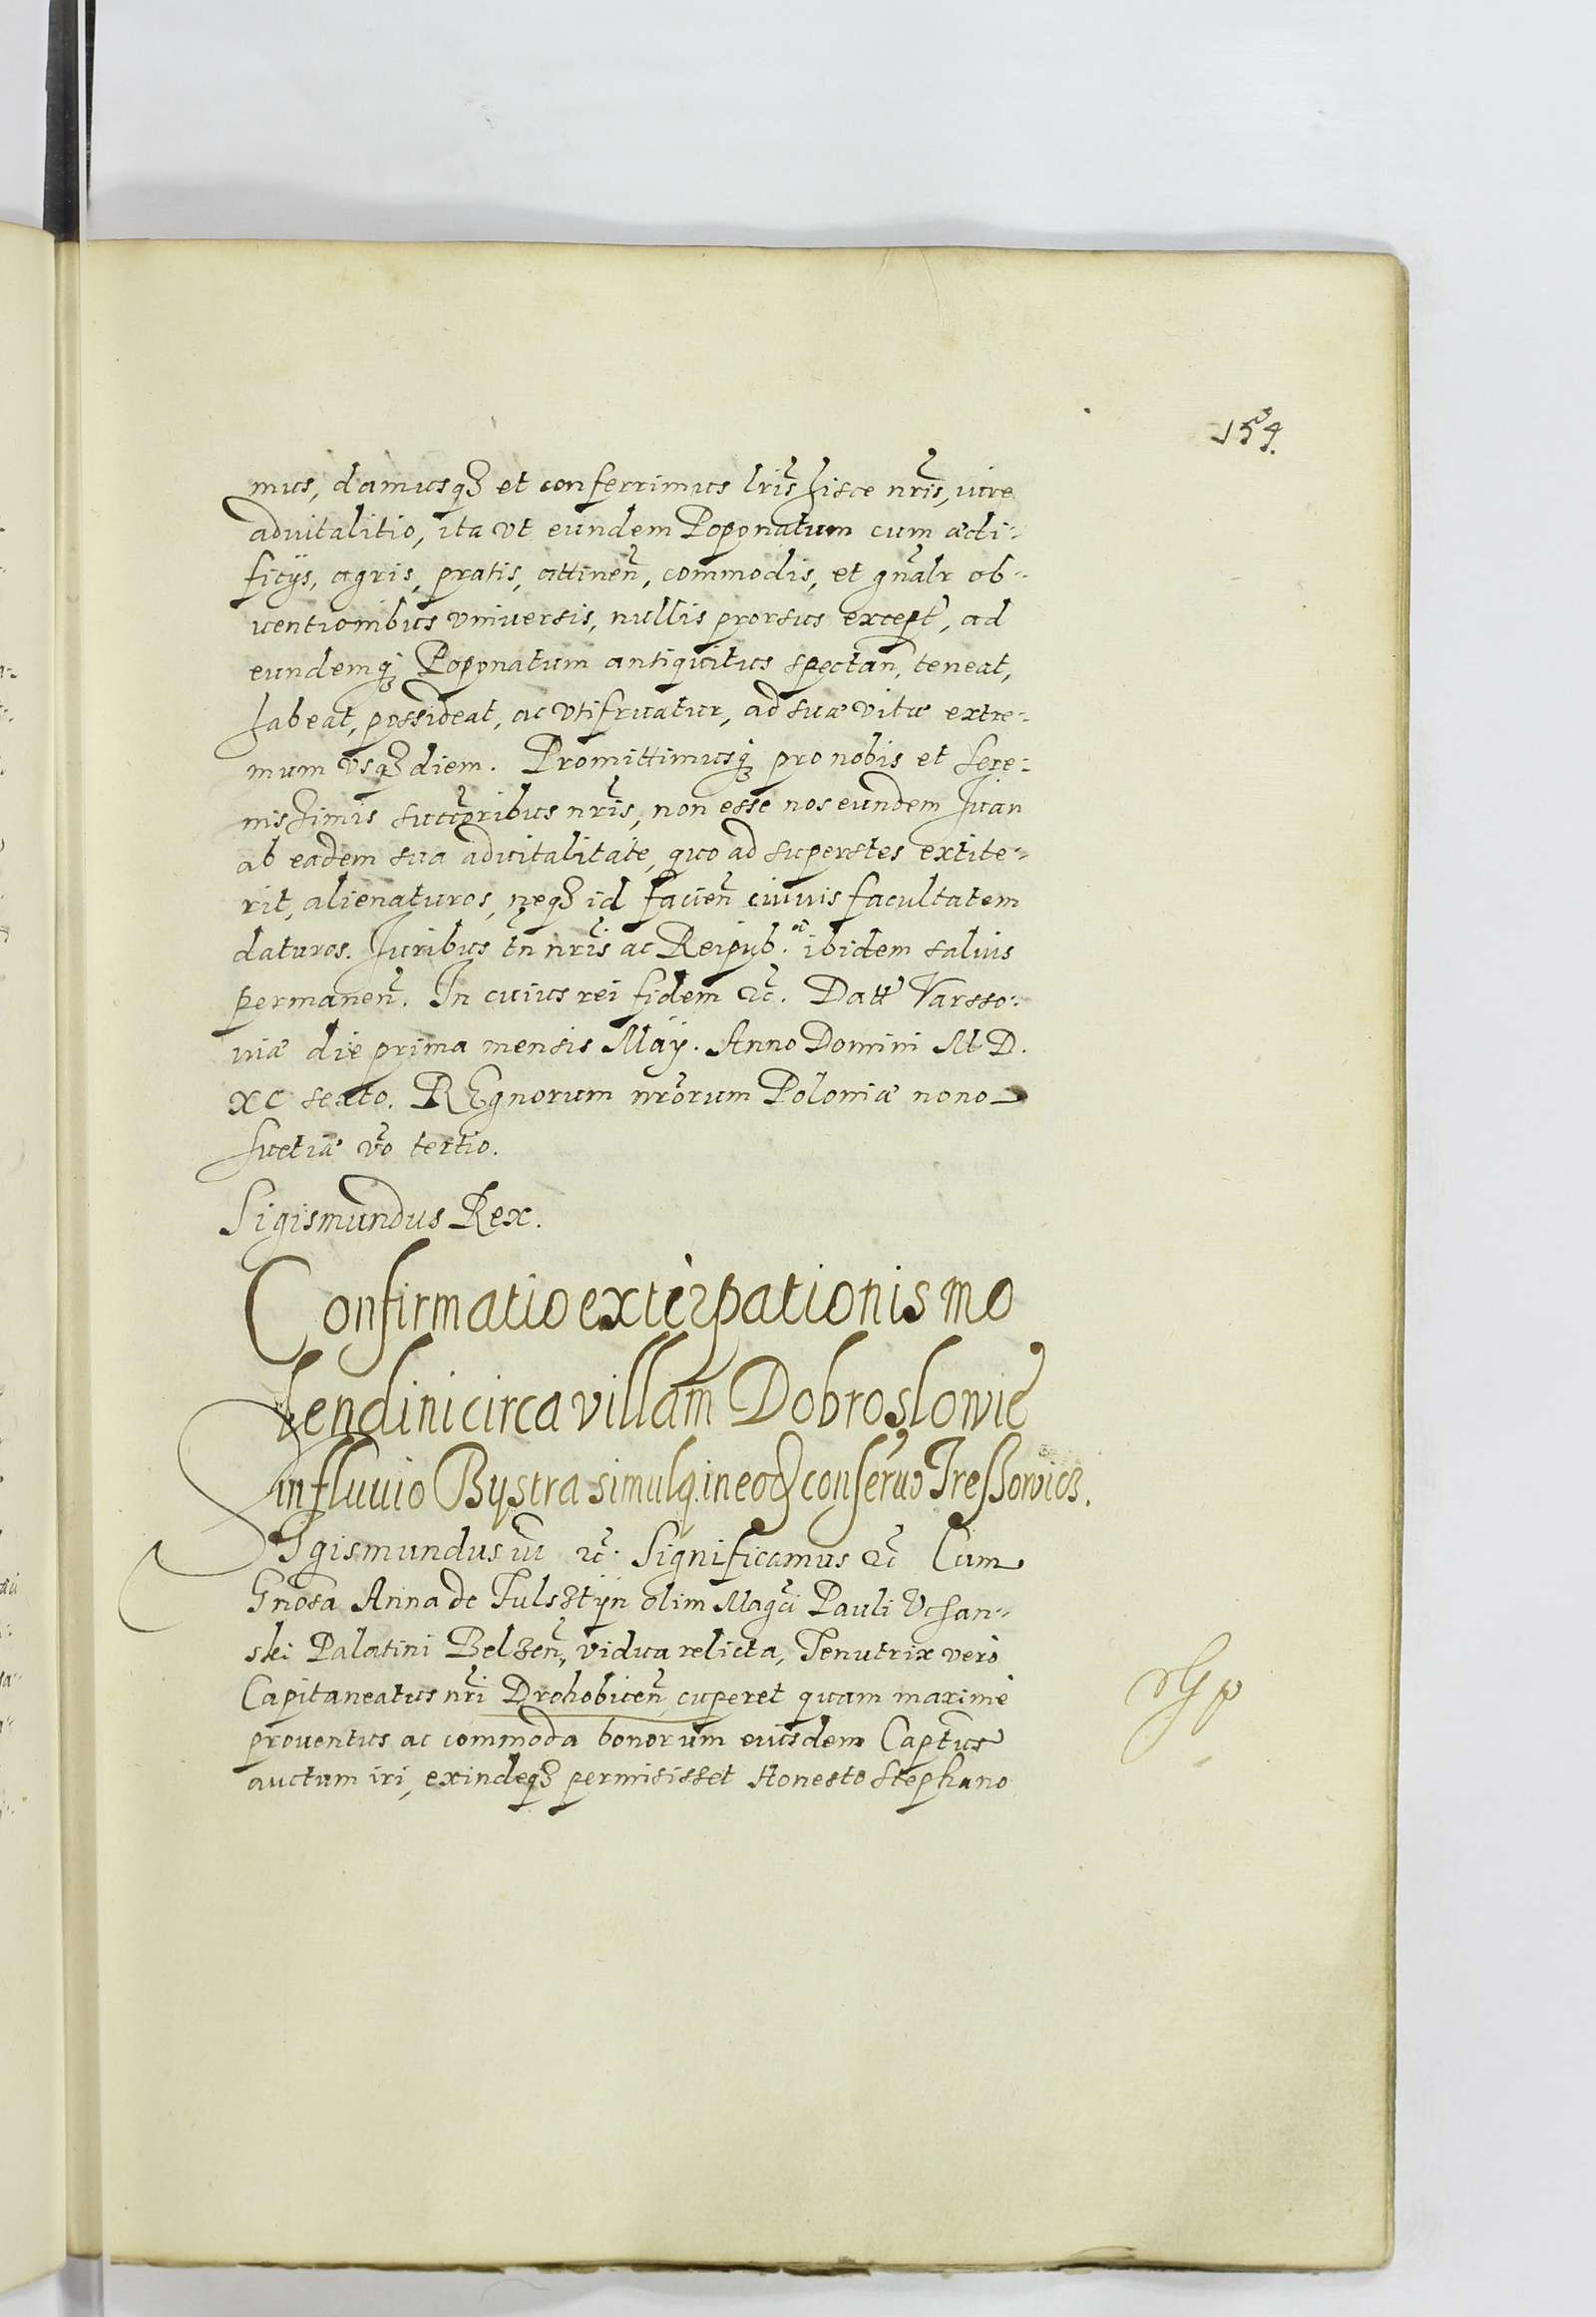 154.
mus, damusqꝫ et conferrimus lris hisce nris, iure
aduitalitio, ita vt eundem Poponatum cum ædi-
ficijs, agris, pratis, attinen, commodis, et gnalr ob-
uentionibus vniuersis, nullis prorsus except, ad
eundemqꝫ Poponatum antiquitus spectan, teneat,
habeat, possideat, ac vtifruatur, ad suæ vitæ extre-
mum vsqꝫ diem. Promittimusqꝫ pro nobis et Sere-
nissimis succribus nris, non esse nos eundem Iuan
ab eadem sua aduitalitate, quo ad superstes extite-
rit, alienaturos, neqꝫ id facien cuiuis facultatem
daturos. Iuribus tn nris ac Reipub. ibidem saluis
permanen. In cuius rei fidem &c. Datt Varsso-
uiæ die prima mensis Maÿ. Anno Domini M D.
XC sexto. REgnorum nrorum Poloniæ nono
Suetiæ vo tertio.
Sigismundus Rex.
Confirmatio extirpationis mo
lendini circa villam Dobroslowie
in fluuio Bystra simulq. in eod conseruo Iressowicz.
SIgismundus iii &c. Significamus &c Cum
Gnosa Anna de Fulsztÿn olim Magci Pauli Vchan-
ski Palatini Belzen, vidua relicta, Tenutrix verò
Capitaneatus nri Drohobicen, cuperet quam maximè
prouentus ac commoda bonorum eiusdem Captus
auctum iri, exindeqꝫ permisisset Honesto Stephano